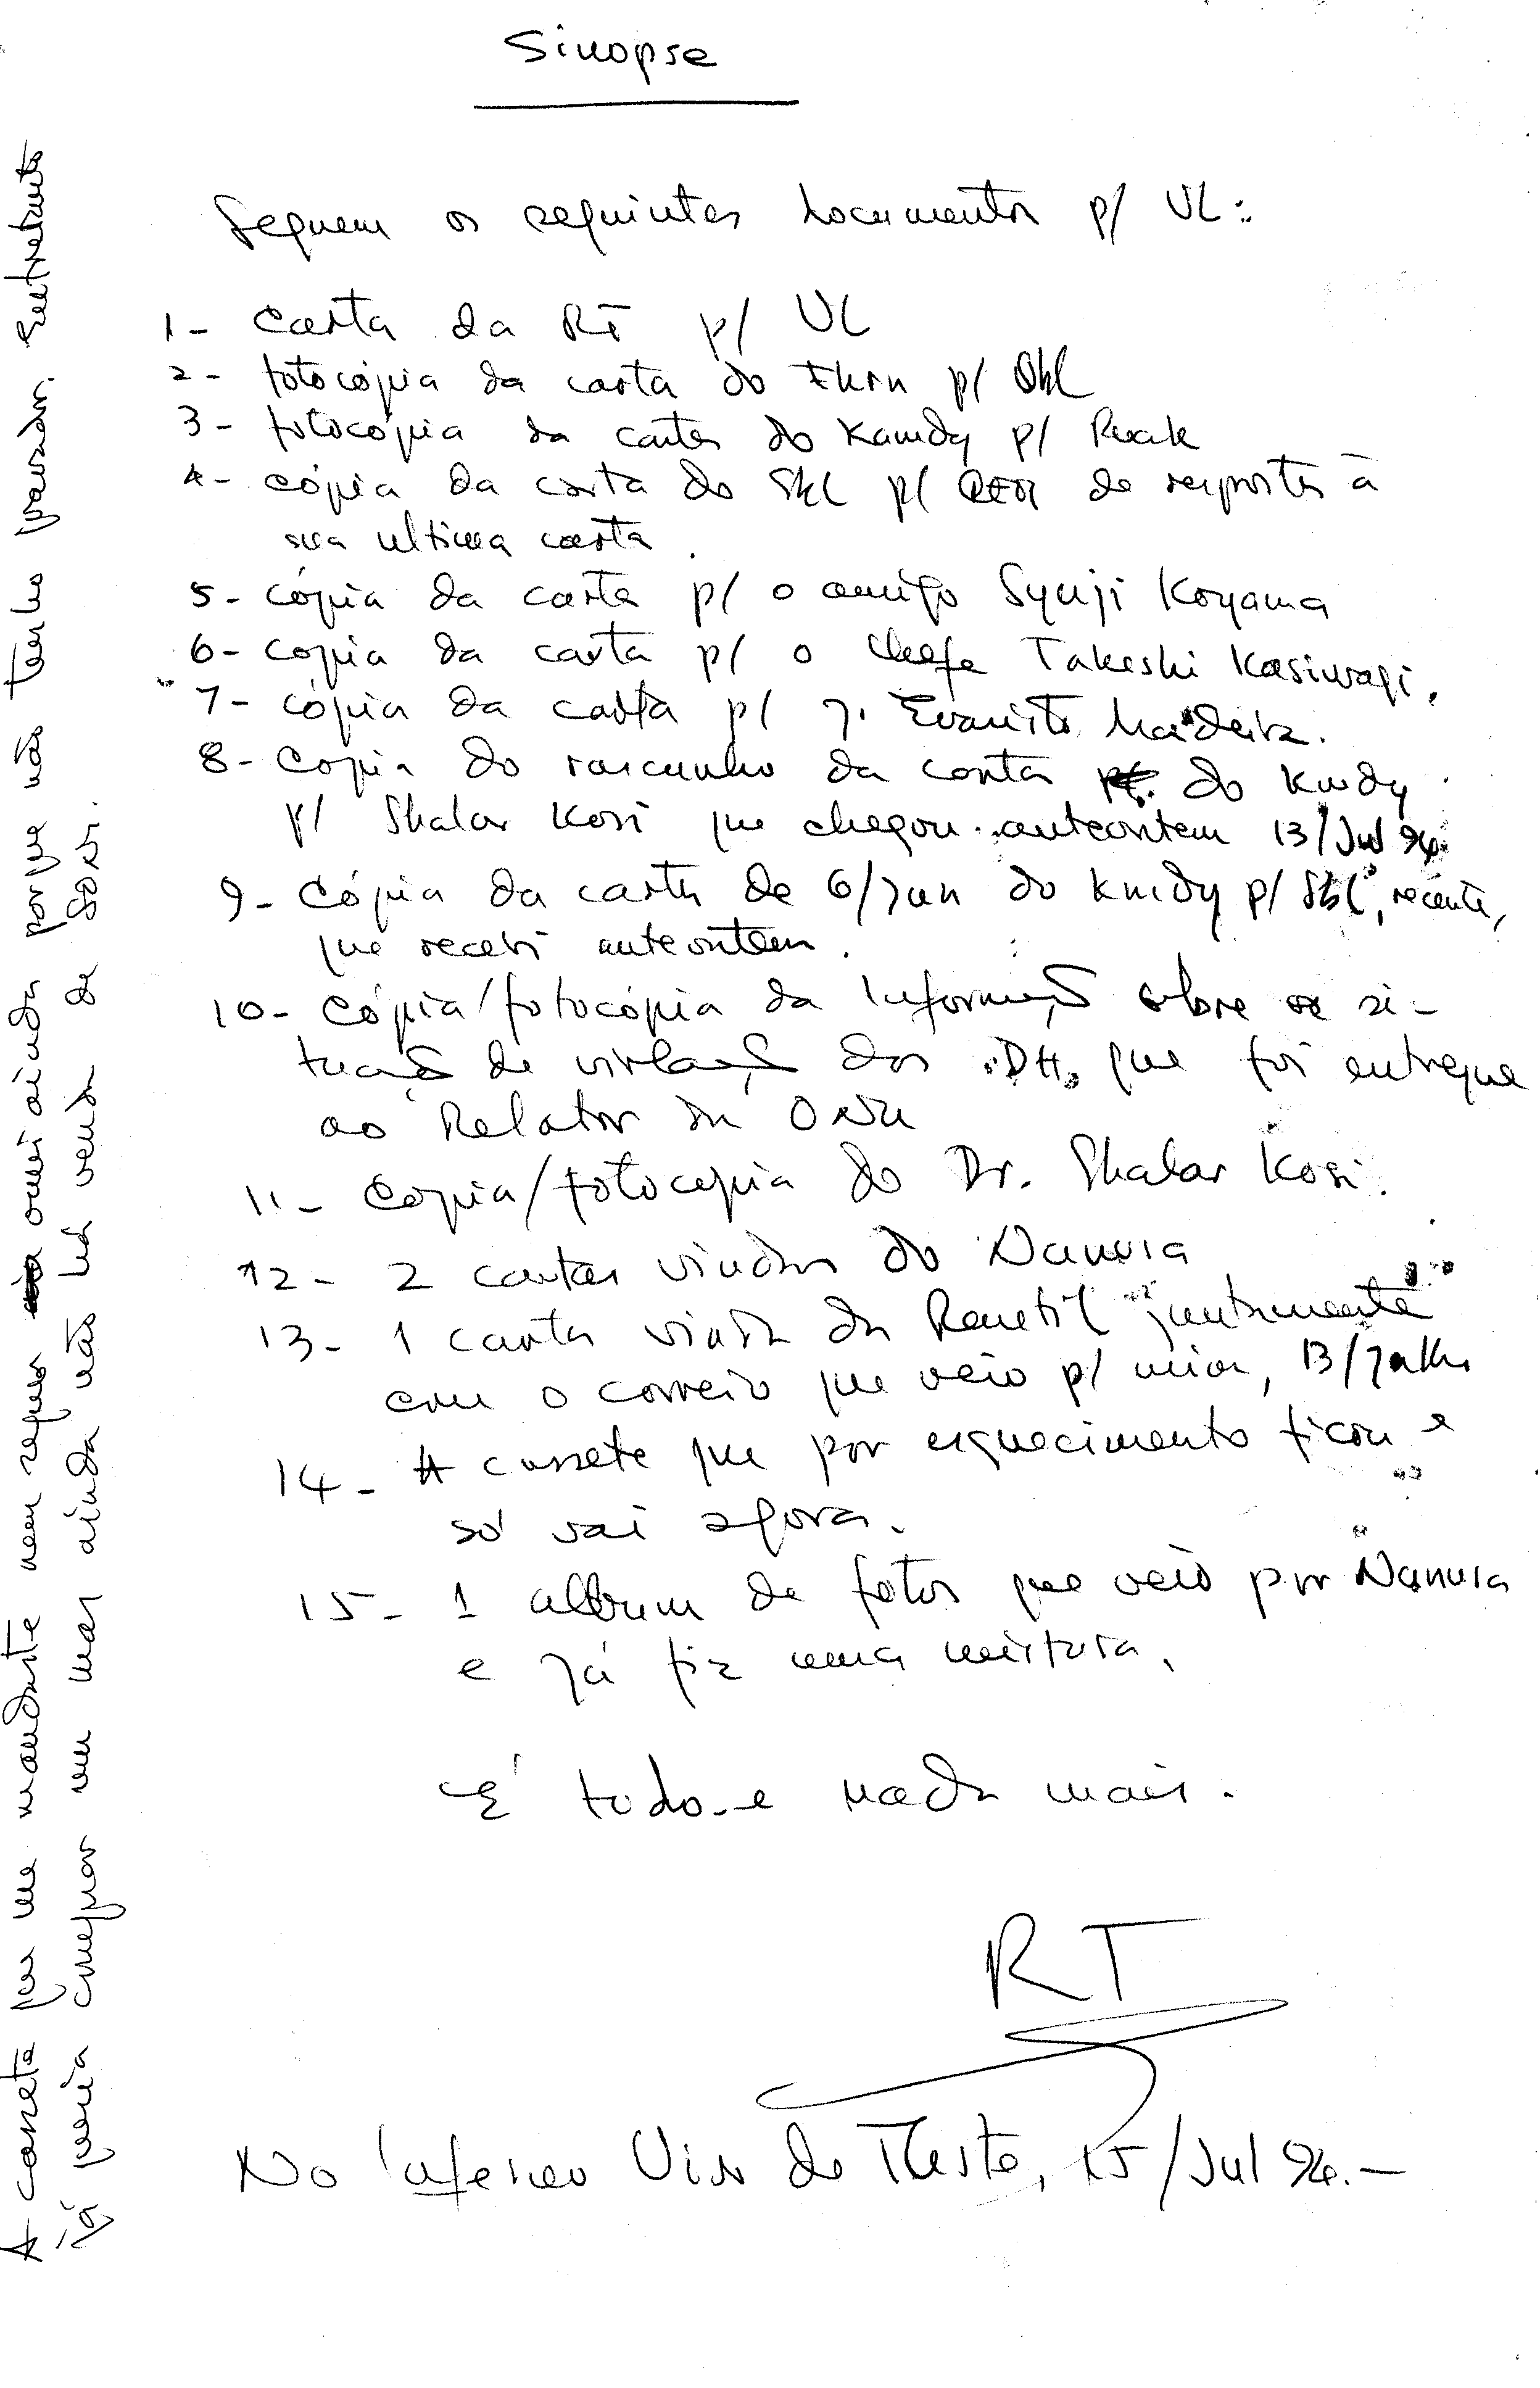 Sinopse
Seguem os seguintes documentos p/ VL:
1- Carta da RT p/ VL
2- fotocópia da carta do p/ SKL
3- fotocópia da carta do Kamdy p/ Renek
4- cópia da carta do SKL p/ de resposta à
sua ultima carta.
5- cópia da carta p/ o amigo Syuji Koyama
6- copia da carta p/ o chefe Takeshi Kasiwagi.
7- cópia da carta p/ J. Evaristo Madeira.
8- Copia do rascunho da carta do Kmdy
p/ Shalar Kosi que chegou anteontem 13/Jul 94.
9- Cópia da carta de 6/Jun do Kmdy p/ SKL, recente,
que recebi anteontem.
10- Cópia/fotocópia da Informação sobre a si-
tuação de violação dos DH, que foi entregue
ao Relator da ONU
11- Copia/fotocopia do Dr. Shalar Kosi.
12- 2 cartas vindas do Nanura
13- 1 carta vinda da Renetil juntamente
com o correio que veio p/ mim, 13/Julho
14- A cassete que por esquecimento ficou e
só vai agora.
15- 1 album de fotos que veio por Nanura
e já fiz uma mistura.
É tudo e nada mais.
RT
No Inferno Vivo do Tleste, 15/Jul 94.-
A cassete que me mandaste nem sequer ouvi ainda porque não tenho gravador. Entretanto
já queria comprar um mas ainda não há venda de